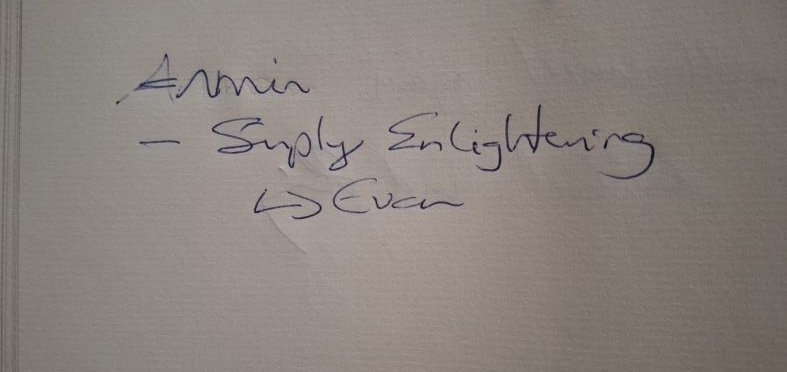 Armin
- Simply Enlightening
↳ Evan